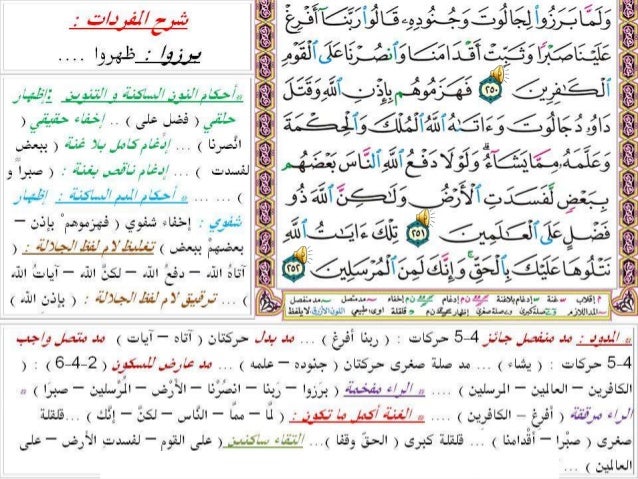 شرح المفردات :
برزوا : ظهروا ....
» أحكام النون الساكنة و التنوين : إظهار
حلقي ( فضل على ) .. إخفاء حقيقي (
انْصرنا ) ... إدغام كامل بلا غنة ( ببعض
لفسدت ) ... إدغام ناقص بغنة : ( صبراً و
) ... ... » أحكام الميم الساكنة : إظهار
شفوي : إخفاء شفوي ( فهزموهمْ بإذن –
بعضهمْ ببعض ) تغليظ لام لفظ الجلالة : (
آتاهُ الله – دفعُ الله – لكنَّ الله – آياتُ الله
) ... ترقيق لام لفظ الجلالة : ( بإذنِ الله )
وَلَمَّا بَرَزُوا۟ لِجَالُوتَ وَجُنُودِهِۦ قَالُوا۟ رَبَّنَآ أَفْرِغْ
عَلَيْنَا صَبْرًا وَثَبِّتْ أَقْدَامَنَا وَٱنصُرْنَا عَلَى ٱلْقَوْمِ
ٱلْكَـٰفِرِينَ ٢٥٠ فَهَزَمُوهُم بِإِذْنِ ٱللَّهِ وَقَتَلَ
دَاوُۥدُ جَالُوتَ وَءَاتَىٰهُ ٱللَّهُ ٱلْمُلْكَ وَٱلْحِكْمَةَ
وَعَلَّمَهُۥ مِمَّا يَشَآءُ ۗ وَلَوْلَا دَفْعُ ٱللَّهِ ٱلنَّاسَ بَعْضَهُم
بِبَعْضٍ لَّفَسَدَتِ ٱلْأَرْضُ وَلَـٰكِنَّ ٱللَّهَ ذُو
فَضْلٍ عَلَى ٱلْعَـٰلَمِينَ ٢٥١ تِلْكَ ءَايَـٰتُ ٱللَّهِ
نَتْلُوهَا عَلَيْكَ بِٱلْحَقِّ ۚ وَإِنَّكَ لَمِنَ ٱلْمُرْسَلِينَ ٢٥٢
» المدود : مد منفصل جائز 4-5 حركات : ( ربنا أفرغ ) ... مد بدل حركتان ( آتاه – آيات ) مد متصل واجب
4-5 حركات : ( يشاء ) ... مد صلة صغرى حركتان ( جنوده – علمه ) ... مد عارض للسكون ( 2-4-6 ) : (
الكافرين – العالمين – المرسلين ) .... » الراء مفخمة ( برَزوا – رَبنا – انصُرْنا – الأرْض – المُرْسلين – صبرًا ) »
الراء مرققة ( أفرِغ – الكافرِين ) .... » الغنة أكمل ما تكون : ( لمَّا – ممَّا – النَّاس – لكنَّ – إنَّك ) ...قلقلة
صغرى ( صبْرا – أقْدامنا ) ... قلقلة كبرى ( الحقّ وقفا )... التقاء ساكنين ( على القوم – لفسدتِ الأرض – على
العالمين ) ...